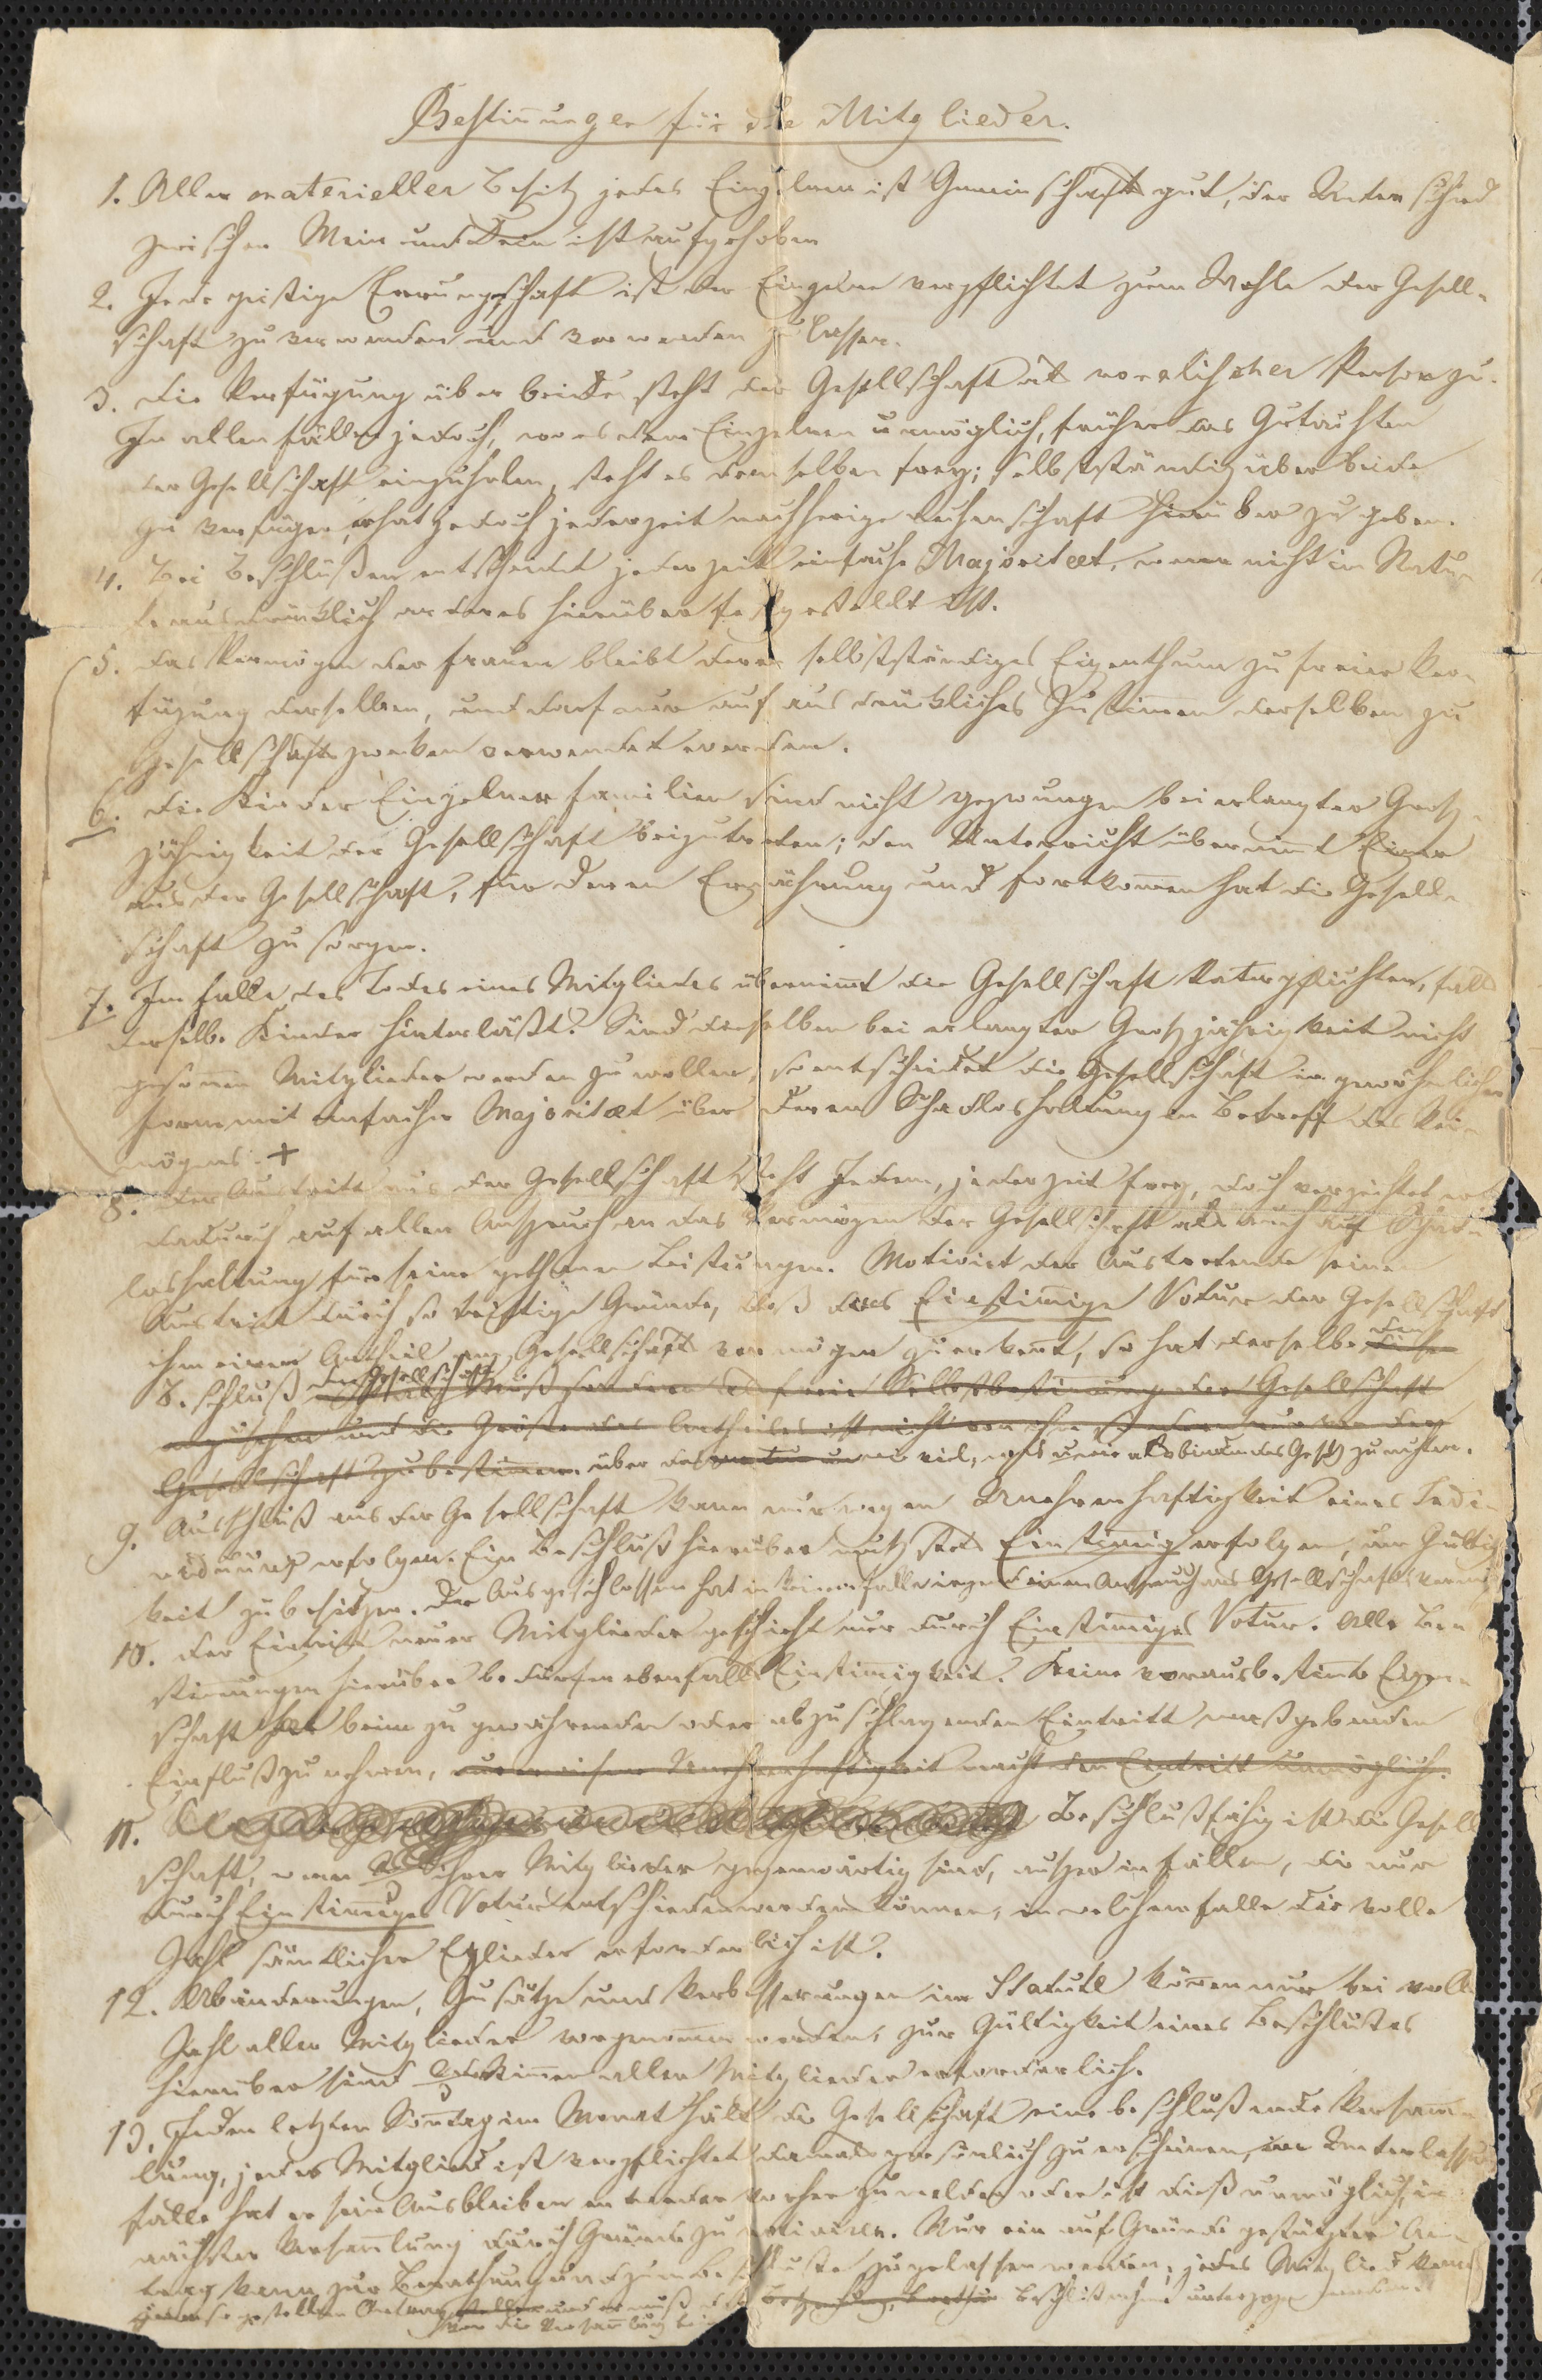 Bestimmungen für die Mitglieder.
1. Aller materieller Besitz jedes Einzelnen ist Gemeinschaftsgut, der Unterschied
zwischen Mein und Dein ist aufgehoben
2. Jede geistige Errungenschaft ist der Einzelne verpflichtet zum Wohle der Gesell-
schaft zu verwenden und verwenden zu lassen.
3. Die Verfügung über beides steht der Gesellschaft als moralischer Person zu.
In allen Fällen jedoch, wo es dem Einzelnen unmöglich, früher das Gutachten
der Gesellschaft einzuholen, steht es demselben frey; selbstständig über beide
zu verfügen, er hat jedoch jederzeit nachherige Rechenschaft hierüber zu geben.
4. Bei Beschlüßen entscheidet jederzeit einfache Majoritaet, wenn nicht im Statu-
te ausdrücklich anderes hierüber festgestellt ist.
5. Das Vermögen der Frauen bleibt deren selbstständiges Eigenthum zu freier Ver-
fügung derselben, und darf nur auf ausdrückliches Zustimmen derselben zu
Gesellschaftszwecken verwendet werden.
6. Die Kinder Einzelner Familien sind nicht gezwungen bei erlangter Groß-
jährigkeit der Gesellschaft beizutreten; den Unterricht übernimmt Einer
aus der Gesellschaft, für deren Ernährung und Fortkommen hat die Gesell-
schaft zu sorgen.
7. Im Falle des Todes eines Mitgliedes übernimmt die Gesellschaft Vaterpflichten, falls
derselbe Kinder hinterläßt. Sind dieselben bei erlangter Großjährigkeit nicht
gesonnen Mitglieder werden zu wollen, so entscheidet die Gesellschaft in gewöhnlicher
Form mit einfacher Majoritaet über deren Schadloshaltung in Betreff des Ver-
mögens. +
8. Der Austritt aus der Gesellschaft steht Jedem, jederzeit frey, doch verzichtet er
dadurch auf allen Anspruch an das Vermögen der Gesellschaft als auch auf Schad-
loshaltung für seine gethanen Leistungen. Motivirt der Austretende seinen
Austritt durch so triftige Gründe, daß das Einstimmige Votum der Gesellschaft
ihm einen Antheil am Gesellschaftsvermögen zuerkennt, so hat derselbe den
Beschluß der Gesellschaft Selbstbestimmung der Gesellschaft
anzusehen und die Größe des Antheiles ist nicht von ihm sondern nur von der
Gesellschaft zu bestimmen. über das wie viel, und wie als bindendes Gesetz zu achten.
9. Ausschluß aus der Gesellschaft kann nur wegen Unehrenhaftigkeit eines Indi-
viduums erfolgen. Ein Beschluß hierüber muß stets Einstimmig erfolgen, um Gültig-
keit zu besitzen. Der Ausgeschlossene hat in keinem Falle irgend einen Anspruch ans Gesellschaftsvermög
10. Der Eintritt neuer Mitglieder geschieht nur durch Einstimmiges Votum. Alle Be-
stimmungen hierüber bedürfen ebenfalls Einstimmigkeit. Keine vorausbestimmte Eigen-
schaft hat beim zu gewährenden oder abzuschlagenden Eintritt maßgebenden
Einfluß zu nehmen, nur erwiesene Unehrenhaftigkeit macht den Eintritt unmöglich.
11. Beschlußfähig ist die Gesell-
schaft, wenn 2/3 ihrer Mitglieder gegenwärtig sind, außer in Fällen, die nur
durch Einstimmiges Votum entschieden werden können, in welchem Falle die volle
Zahl sämtlicher Glieder erforderlich ist.
12. Abänderungen, Zusätze und Verbesserungen im Statute können nur bei voller
Zahl aller Mitglieder vorgenommen werden, zur Gültigkeit eines Beschlußes
hierüber sind Stimmen aller Mitglieder erforderlich.
13. Jeden letzten Sonntag im Monat hält die Gesellschaft eine beschlußende Versamm-
lung, jedes Mitglied ist verpflichtet damals persönlich zu erscheinen, im Unterlassungs
falle hat er sein Ausbleiben entweder vorher zu melden oder ist dieß unmöglich, in
nächster Versammlung durch Gründe zu motiviren. Nur ein auf Gründe gestützter An-
trag kann zur Berathung und zum Beschluße zugelassen werden, jedes Mitglied kann
gestellten Antrag stellen und er muß Beschlußnahme unterzogen werden.
von der Versammlung